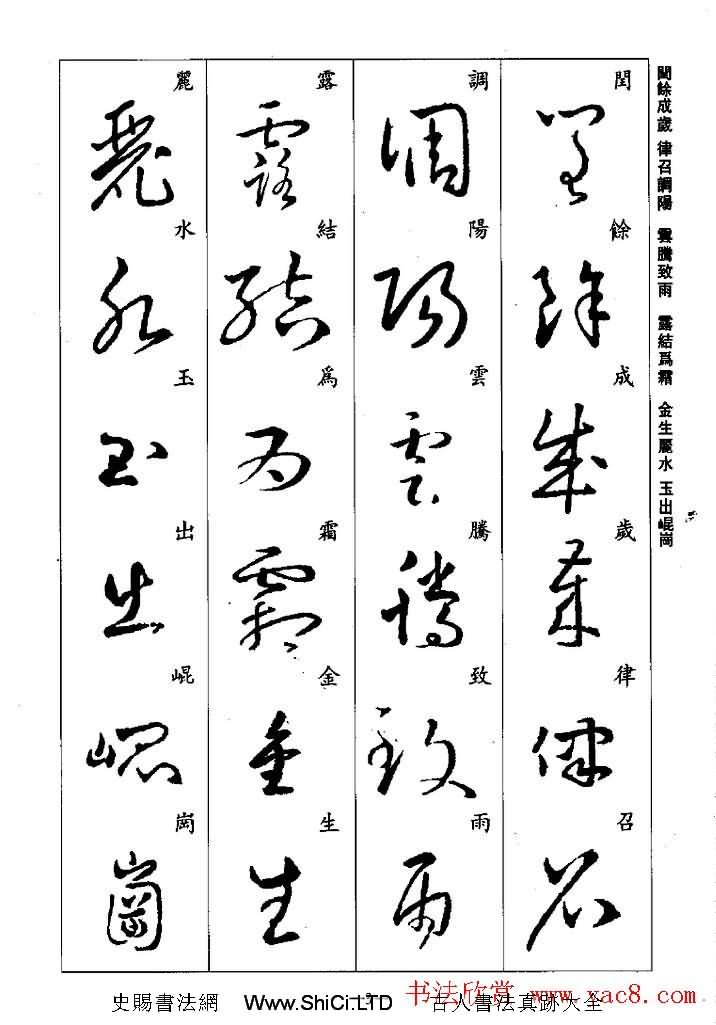 閏餘成歲 律召調陽 雲騰致雨 露結爲霜 金生麗水 玉出崐崗
閏餘成歲律召
調陽雲騰致雨
露結爲霜金生
麗水玉出崐崗
3
史賜書法網 Www.ShiCi.LTD 古人書法真跡大全
书法欣赏 www.yac8.com